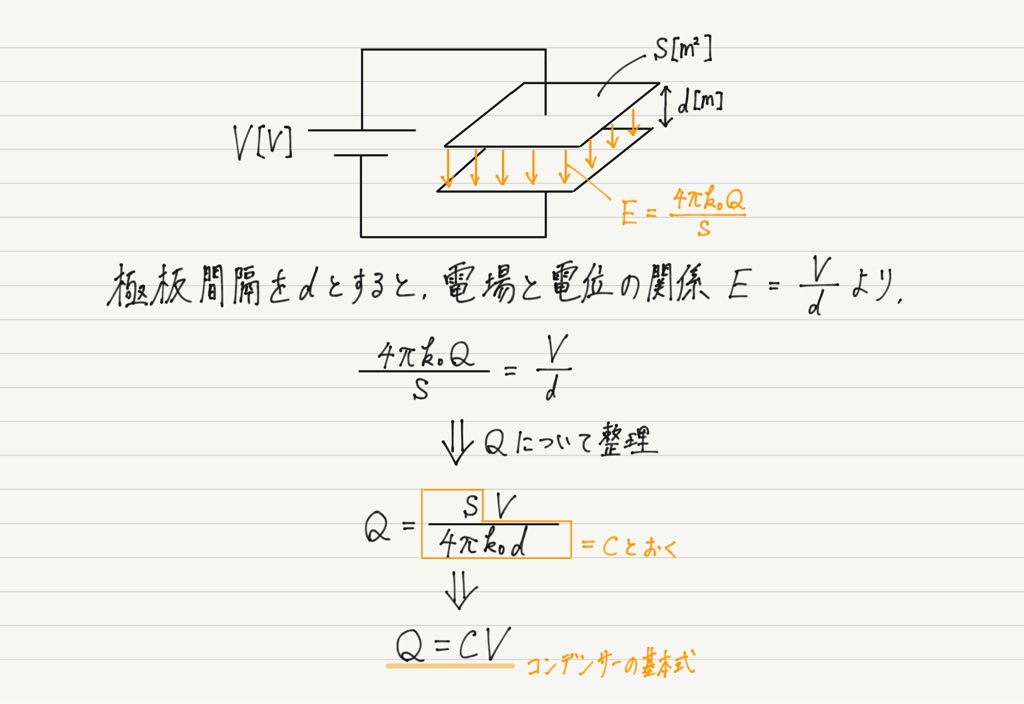 S[m²]
d[m]
V[V]
E = 4πk₀Q/S
極板間隔をdとすると,電場と電位の関係 E = V/d より,
4πk₀Q/S = V/d
⇓ Qについて整理
Q = SV/4πk₀d = Cとおく
⇓
Q = CV コンデンサーの基本式